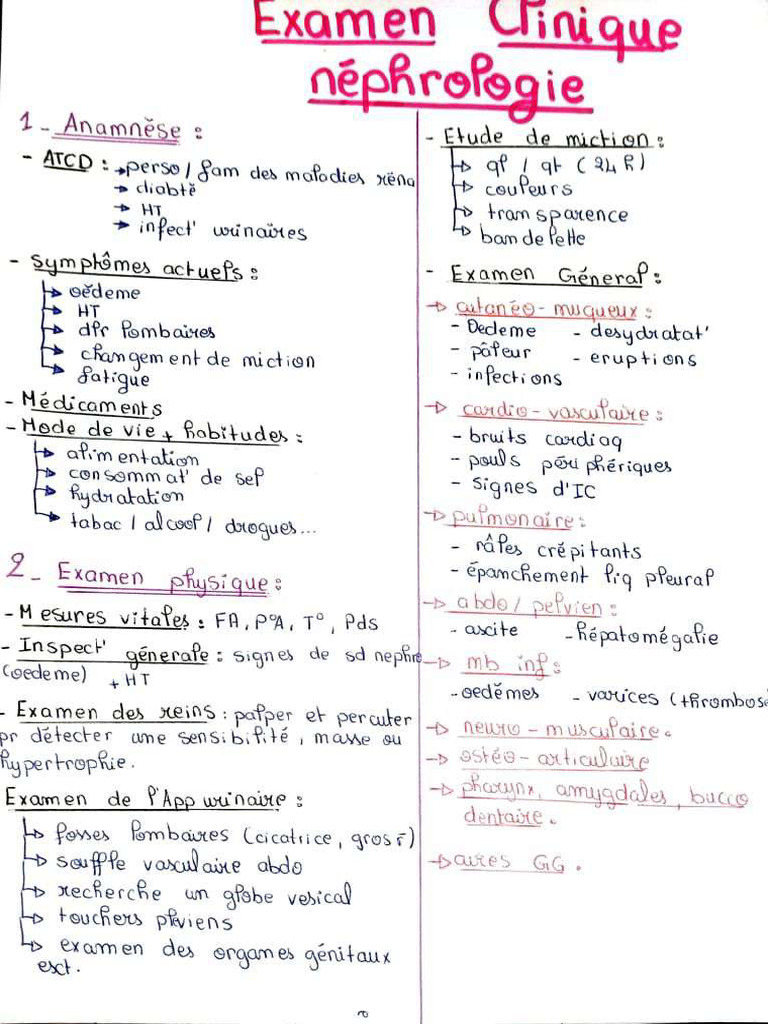 Examen Clinique
néphrologie
1 - Anamnèse :
- ATCD : → perso / fam des maladies réna
→ diabtè
→ HT
→ infect° urinaires
- Symptômes actuels :
→ oedeme
→ HT
→ dlr lombaires
→ changement de miction
→ fatigue
- Médicaments
- Mode de vie + habitudes :
→ alimentation
→ consommat° de sel
→ hydratation
→ tabac / alcool / drogues...
2 - Examen physique :
- Mesures vitales : FA, P°A, T°, Pds
- Inspect° génerale : signes de sd nephro
(oedeme) + HT
- Examen des reins : palper et percuter
pr détecter une sensibilité, masse ou
hypertrophie.
Examen de l'App urinaire :
→ fosses lombaires (cicatrice, gros r̄)
→ souffle vasculaire abdo
→ recherche un globe vesical
→ touchers plviens
→ examen des organes génitaux
esct.
- Etude de miction :
→ ql / qt (24 h)
→ couleurs
→ transparence
→ bandelette
- Examen Géneral :
→ cutanéo-muqueux :
- Oedeme - desydratat°
- pâleur - eruptions
- infections
→ cardio-vasculaire :
- bruits cardiaq
- pouls péri phériques
- signes d'IC
→ pulmonaire :
- râles crépitants
- épanchement liq pleural
→ abdo / pelvien :
- ascite - hépatomégalie
→ mb inf :
- oedémes - varices (thrombose
→ neuro-musculaire.
→ ostéo-articulaire
→ pharynx, amygdales, bucco
dentaire.
→ aires GG.